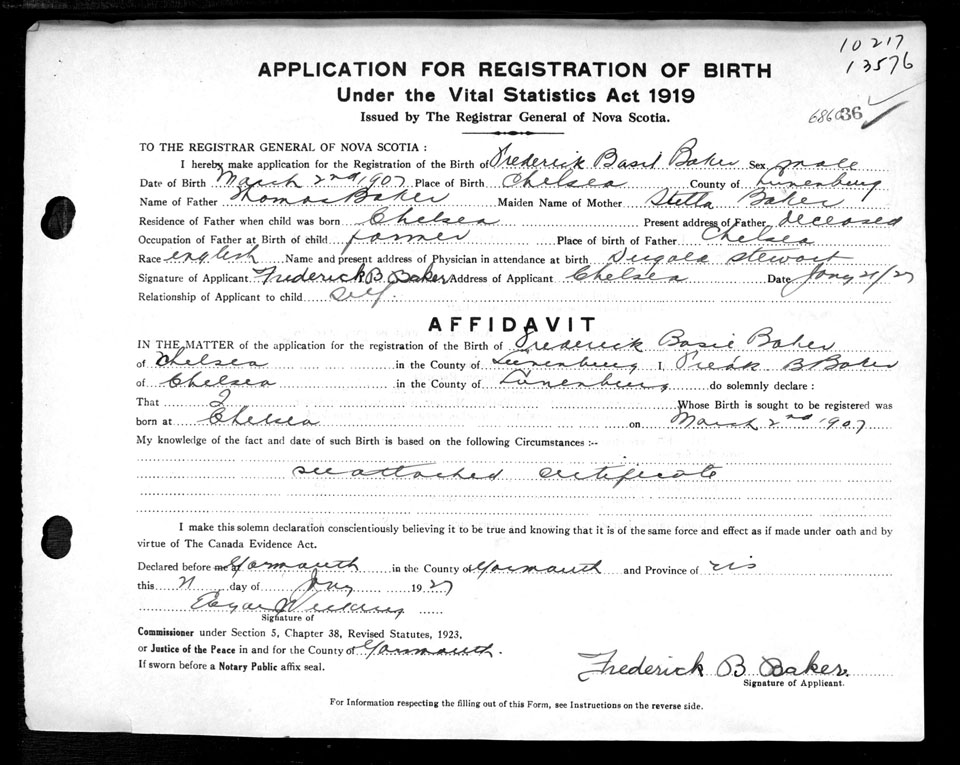 10217
13576
68636
APPLICATION FOR REGISTRATION OF BIRTH
Under the Vital Statistics Act 1919
Issued by The Registrar General of Nova Scotia.
TO THE REGISTRAR GENERAL OF NOVA SCOTIA :
I hereby make application for the Registration of the Birth of Frederick Basil Baker Sex male
Date of Birth March 2nd 1907 Place of Birth Chelsea County of Lunenburg
Name of Father Thomas Baker Maiden Name of Mother Stella Baker
Residence of Father when child was born Chelsea Present address of Father deceased
Occupation of Father at Birth of child farmer Place of birth of Father Chelsea
Race english Name and present address of Physician in attendance at birth Dugald Stewart
Signature of Applicant Frederick B. Baker Address of Applicant Chelsea Date Jany 21/27
Relationship of Applicant to child self.
AFFIDAVIT
IN THE MATTER of the application for the registration of the Birth of Frederick Basil Baker
of Chelsea in the County of Lunenburg I, Fredk B Baker
of Chelsea in the County of Lunenburg do solemnly declare :
That I Whose Birth is sought to be registered was
born at Chelsea on March 2nd 1907
My knowledge of the fact and date of such Birth is based on the following Circumstances :--
see attached certificate
I make this solemn declaration conscientiously believing it to be true and knowing that it is of the same force and effect as if made under oath and by
virtue of The Canada Evidence Act.
Declared before me at Yarmouth in the County of Yarmouth and Province of NS
this 21 day of Jany 1927
Signature of
Commissioner under Section 5, Chapter 38, Revised Statutes, 1923,
or Justice of the Peace in and for the County of Yarmouth.
If sworn before a Notary Public affix seal.
Frederick B Baker.
Signature of Applicant.
For Information respecting the filling out of this Form, see Instructions on the reverse side.